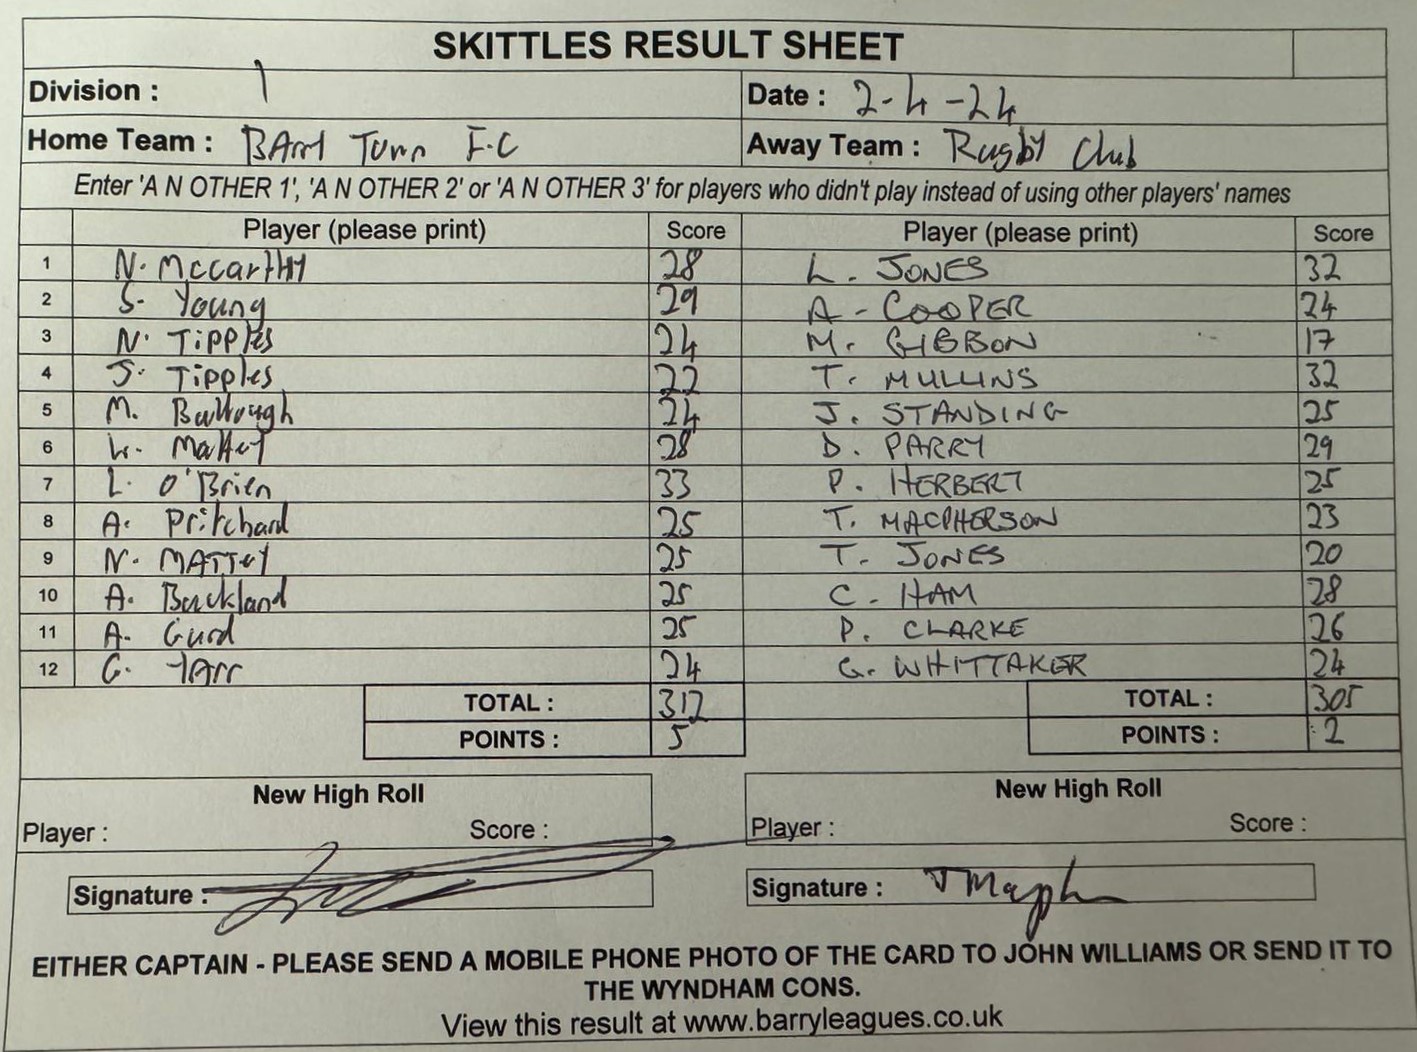 SKITTLES RESULT SHEET
Division : 1 Date : 2-4-24
Home Team : BArry Town F.C Away Team : Rugby Club
Enter 'A N OTHER 1', 'A N OTHER 2' or 'A N OTHER 3' for players who didn't play instead of using other players' names
Player (please print) Score Player (please print) Score
1 N. MccartHy 28 L. JONES 32
2 S. Young 29 A - COOPER 24
3 N. Tipples 24 M. GIBBON 17
4 J. Tipples 22 T. MULLINS 32
5 M. Bullough 24 J. STANDING 25
6 W. Mattey 28 D. PARRY 29
7 L. O'Brien 33 P. HERBERT 25
8 A. Pritchard 25 T. MACPHERSON 23
9 N. MATTey 25 T. JONES 20
10 A. Buckland 25 C. HAM 28
11 A. Gurd 25 P. CLARKE 26
12 G. TArr 24 G. WHITTAKER 24
TOTAL : 312 TOTAL : 305
POINTS : 5 POINTS : 2
New High Roll New High Roll
Player : Score : Player : Score :
Signature : Signature :
EITHER CAPTAIN - PLEASE SEND A MOBILE PHONE PHOTO OF THE CARD TO JOHN WILLIAMS OR SEND IT TO
THE WYNDHAM CONS.
View this result at www.barryleagues.co.uk